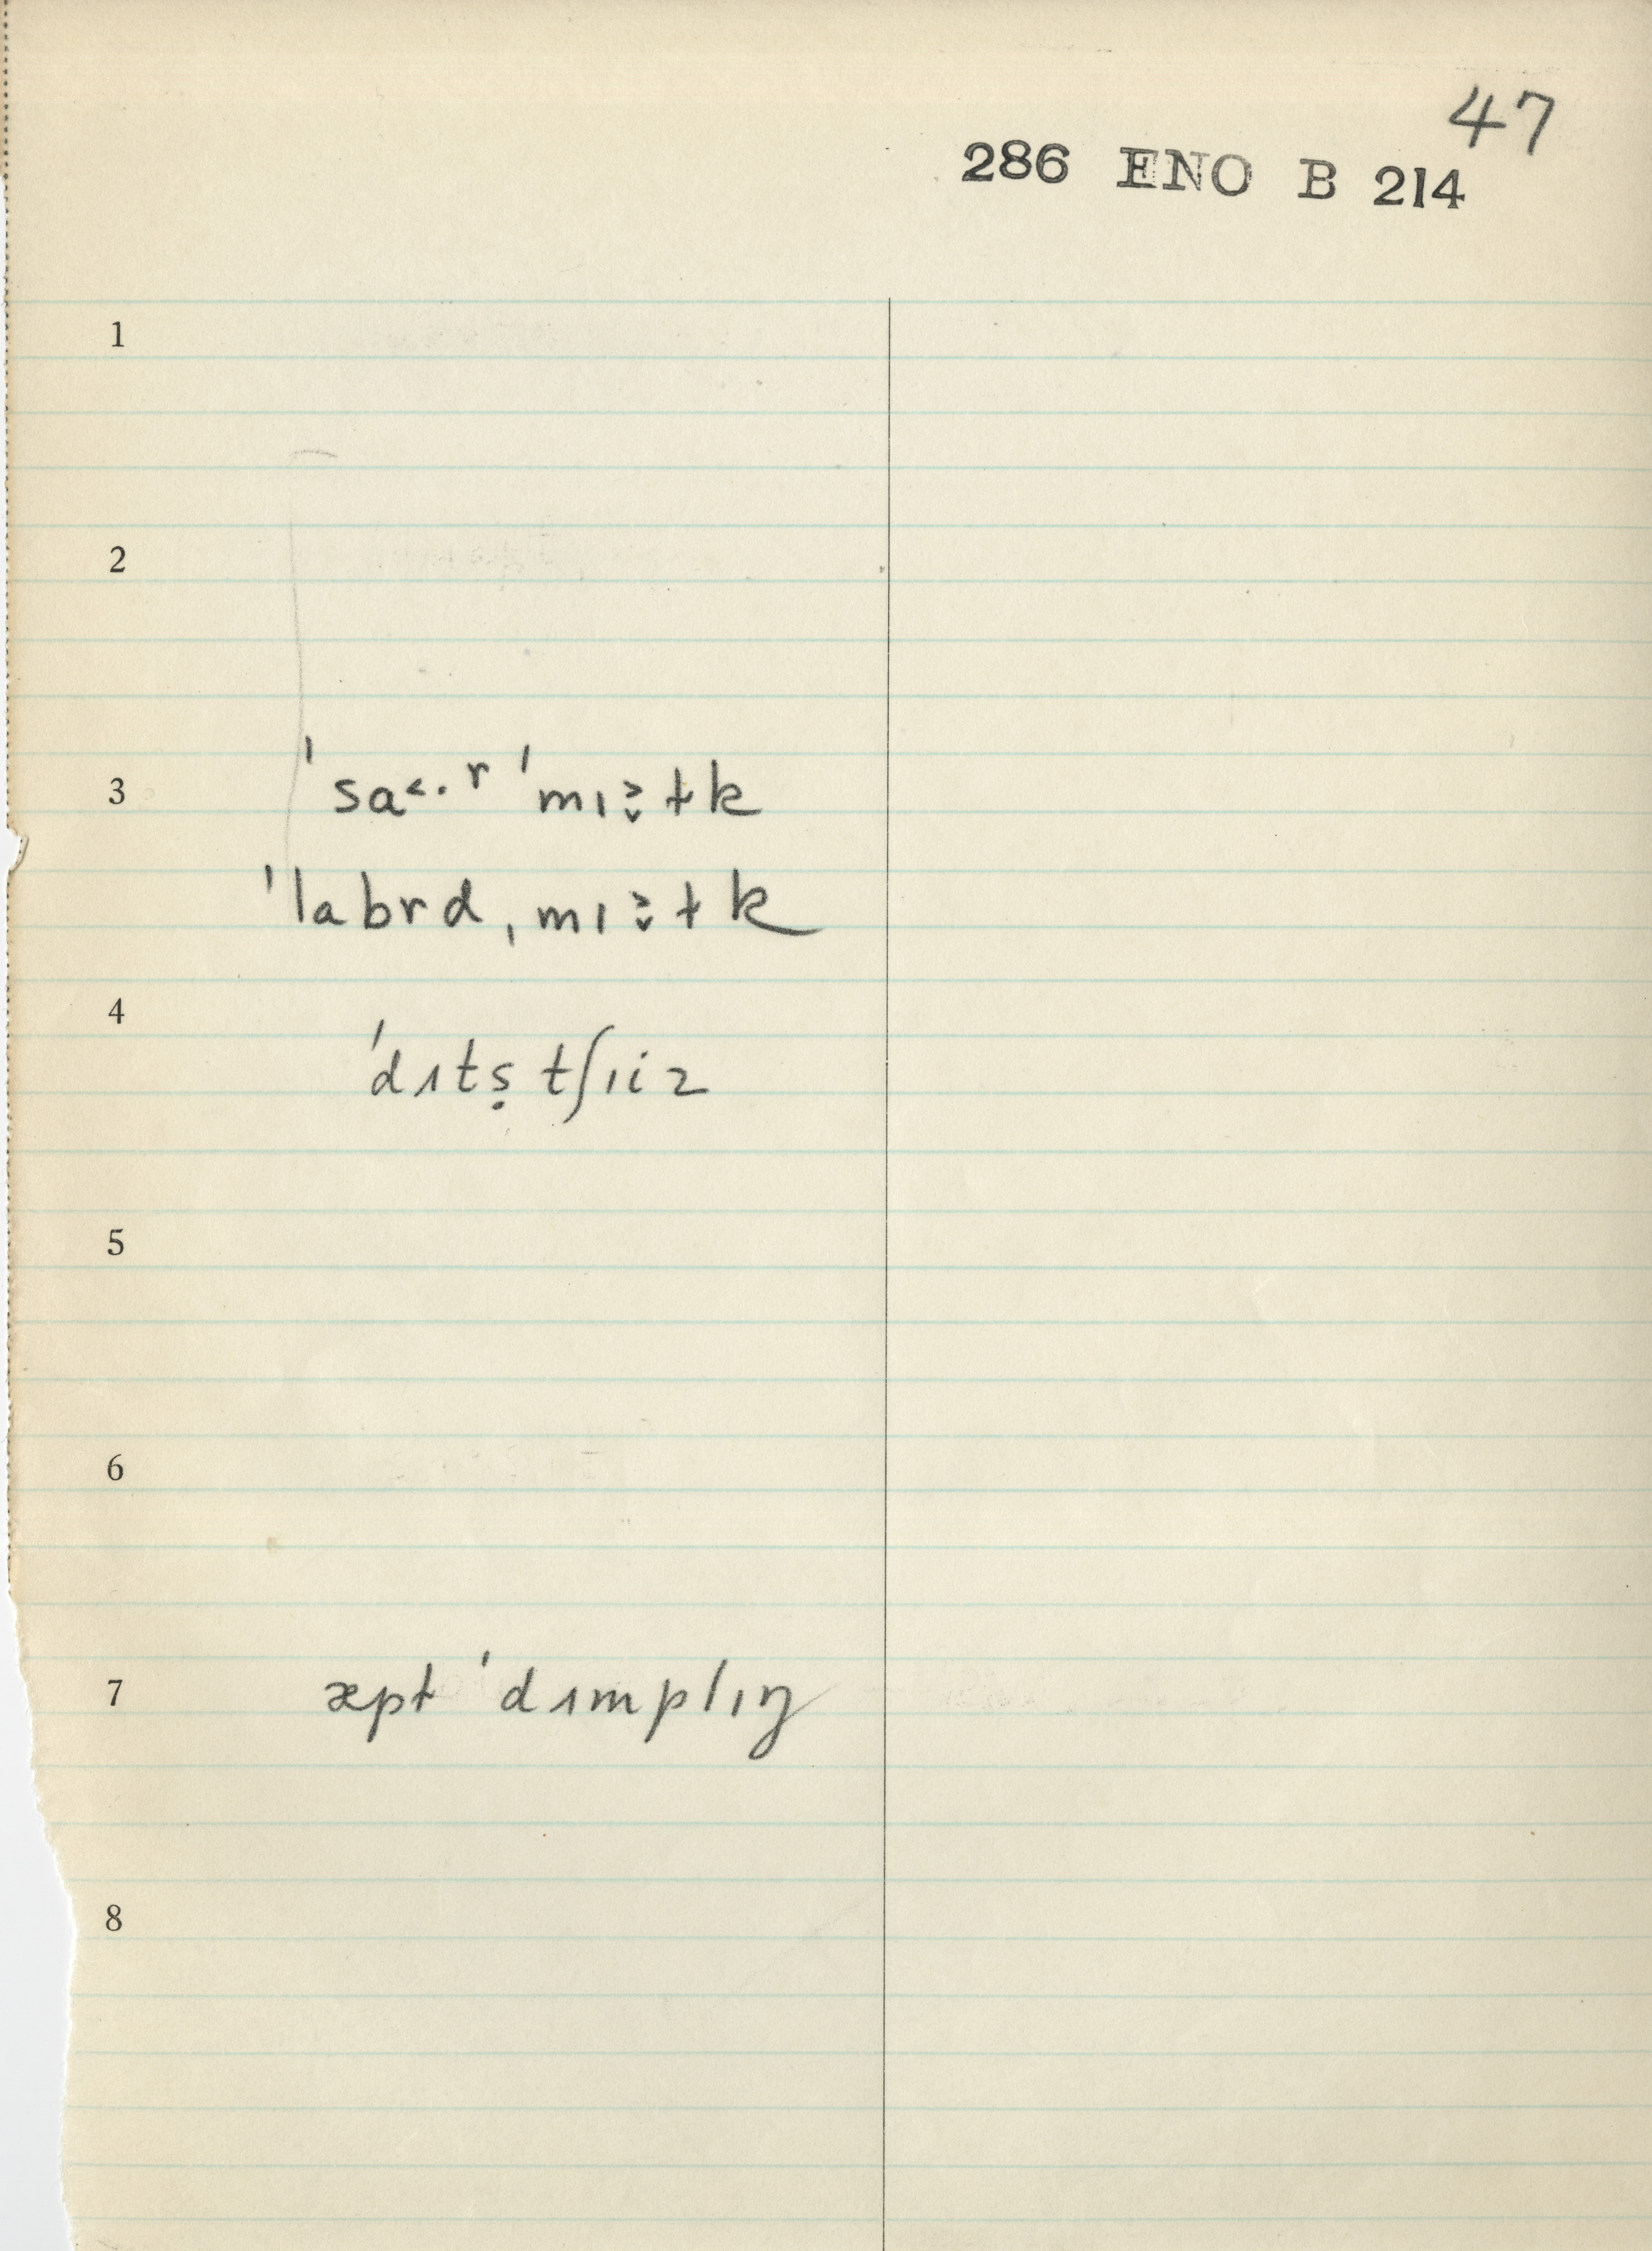 47
286 ENO B 214
1
2
3 ˈsa˂·ʳ ˈmɪ˃̬ɫk
ˈlabrd ˌmɪ˃̬ɫk
4 ˈdɪtṣ tʃɪiz
5
6
7 æpɫ ˈdɪmplɪŋ
8